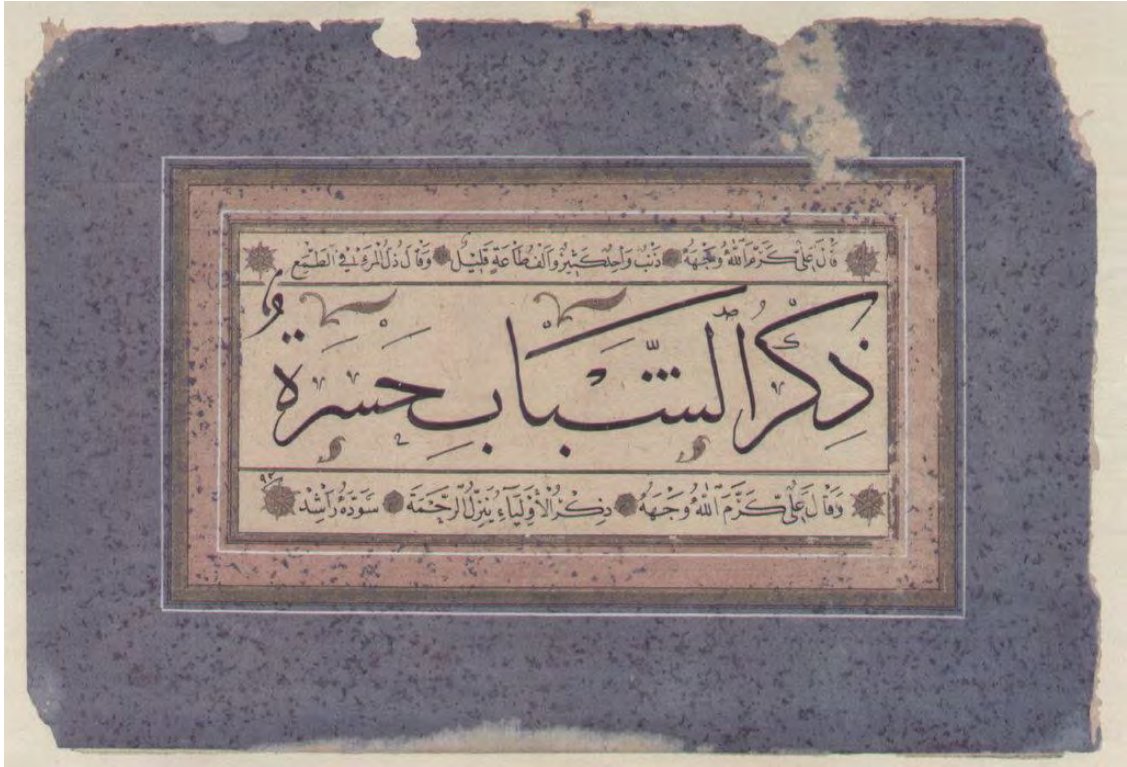 قَالَ عَلِيٌّ كَرَّمَ اللهُ وَجْهَهُ ذَنْبٌ وَاحِدٌ كَثِيرٌ وَأَلْفُ طَاعَةٍ قَلِيلٌ وَقَالَ ذُلُّ الْمَرْءِ فِي الطَّمَعِ
ذِكْرُ الشَّبَابِ حَسْرَةٌ
وَقَالَ عَلِيٌّ كَرَّمَ اللهُ وَجْهَهُ ذِكْرُ الْأَوْلِيَاءِ يُنَزِّلُ الرَّحْمَةَ سَوَّدَهُ رَاشِد ٩٢